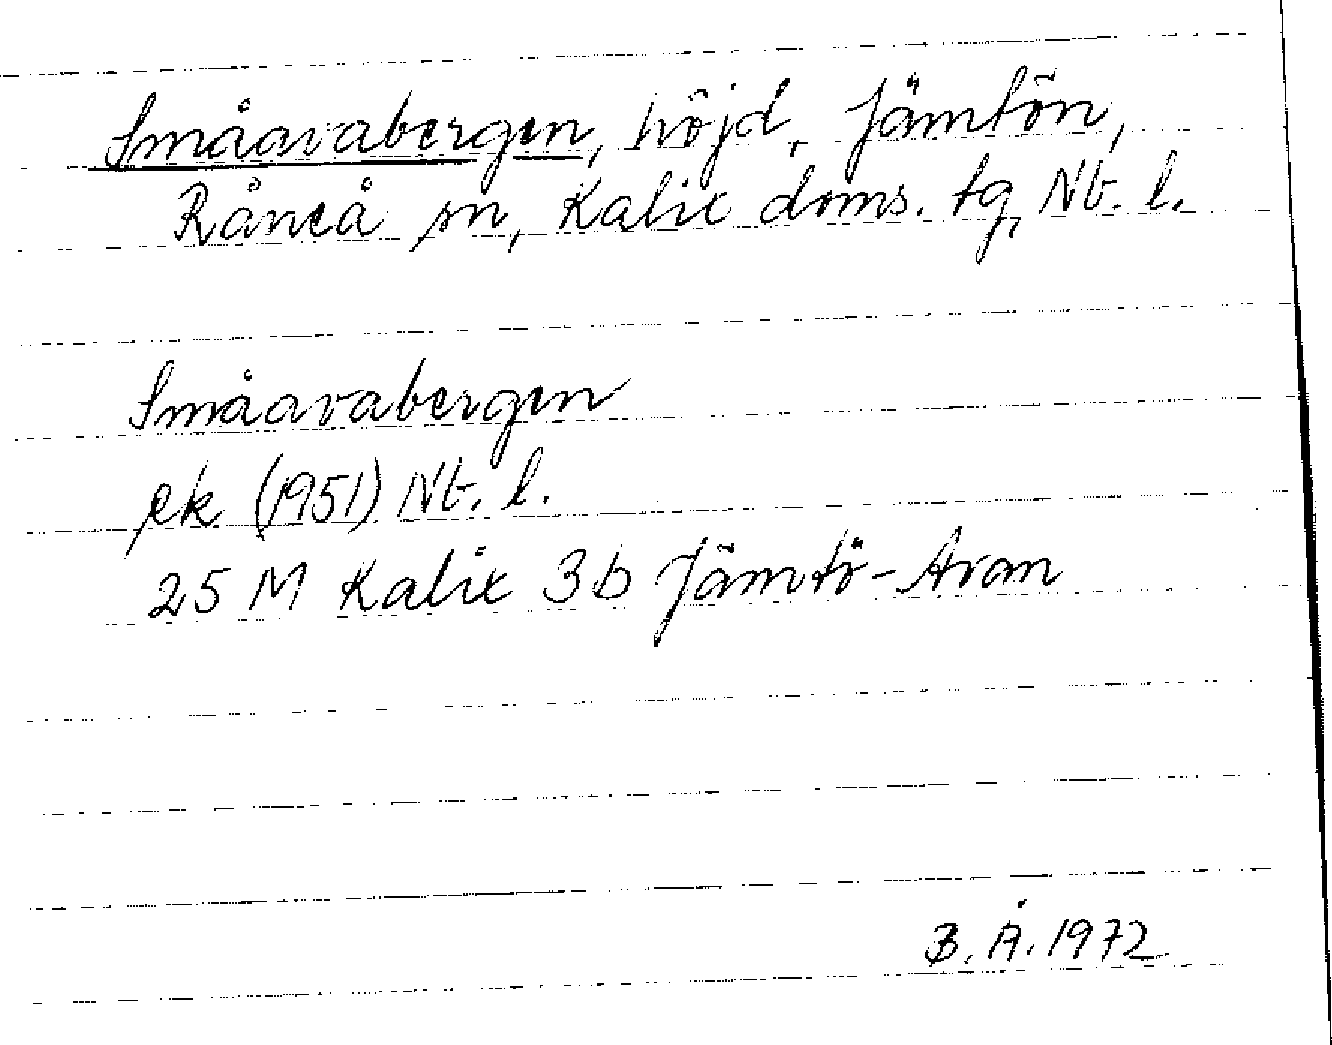 Småavabergen, höjd, Jämtön,
Råneå sn, Kalix doms. tg, Nb. l.
Småavabergen
ek (1951) Nb. l.
25 M Kalix 3b Jämtö-Avan
B. Å. 1972